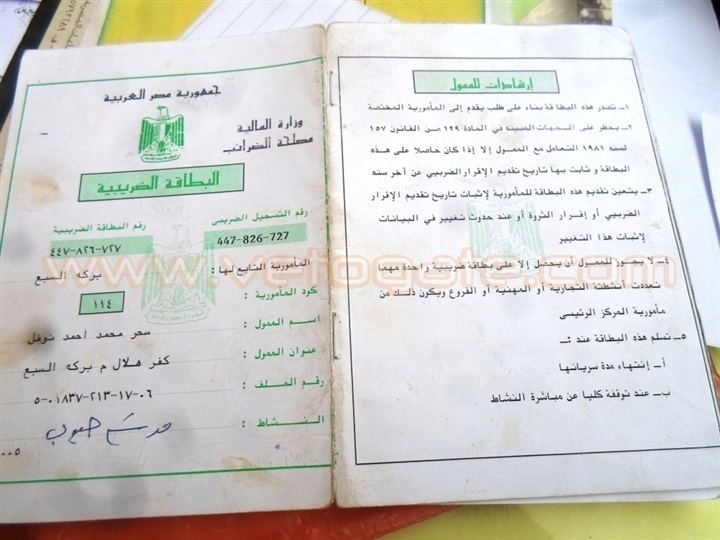 جمهورية مصر العربية
وزارة المالية
مصلحة الضرائب
البطاقة الضريبية
رقم التسجيل الضريبى
رقم البطاقة الضريبية
447-826-727
٤٤٧-٨٢٦-٧٢٧
المأمورية التابع لها :
بركه السبع
كود المأمورية :
١١٤
اسم الممول :
سحر محمد احمد نوفل
عنوان الممول :
كفر هلال م بركه السبع
رقم الملف :
٥-٠١٨٣٧-٢١٣-١٧-٠٦
النشاط :
إرشادات للممول
١ـ تصدر هذه البطاقة بناء على طلب يقدم إلى المأمورية المختصة
٢ـ يحظر على الجهات المبينه في المادة ١٢٩ من القانون ١٥٧
لسنه ١٩٨١ التعامل مع الممول إلا إذا كان حاصلا على هذه
البطاقة و ثابت بها تاريخ تقديم الإقرار الضريبي عن آخر سنه
٣ـ يتعين تقديم هذه البطاقة للمأمورية لإثبات تاريخ تقديم الإقرار
الضريبي أو إقرار الثروة أو عند حدوث تغيير في البيانات
لإثبات هذا التغيير
٤ـ لا يجوز للممول أن يحصل إلا على بطاقة ضريبية واحدة مهما
تعددت أنشطتة التجارية أو المهنية أو الفروع ويكون ذلك من
مأمورية المركز الرئيسى
٥ـ تسلم هذه البطاقة عند :ـ
أـ إنتهاء مدة سريانها
بـ عند توقفة كليا عن مباشرة النشاط
www.vetogate.com